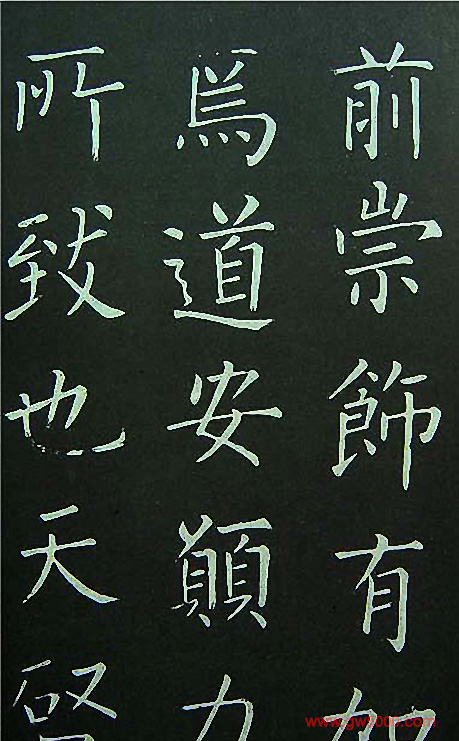 前崇飾有加
焉道安願力
所致也天
www.gw1000.com